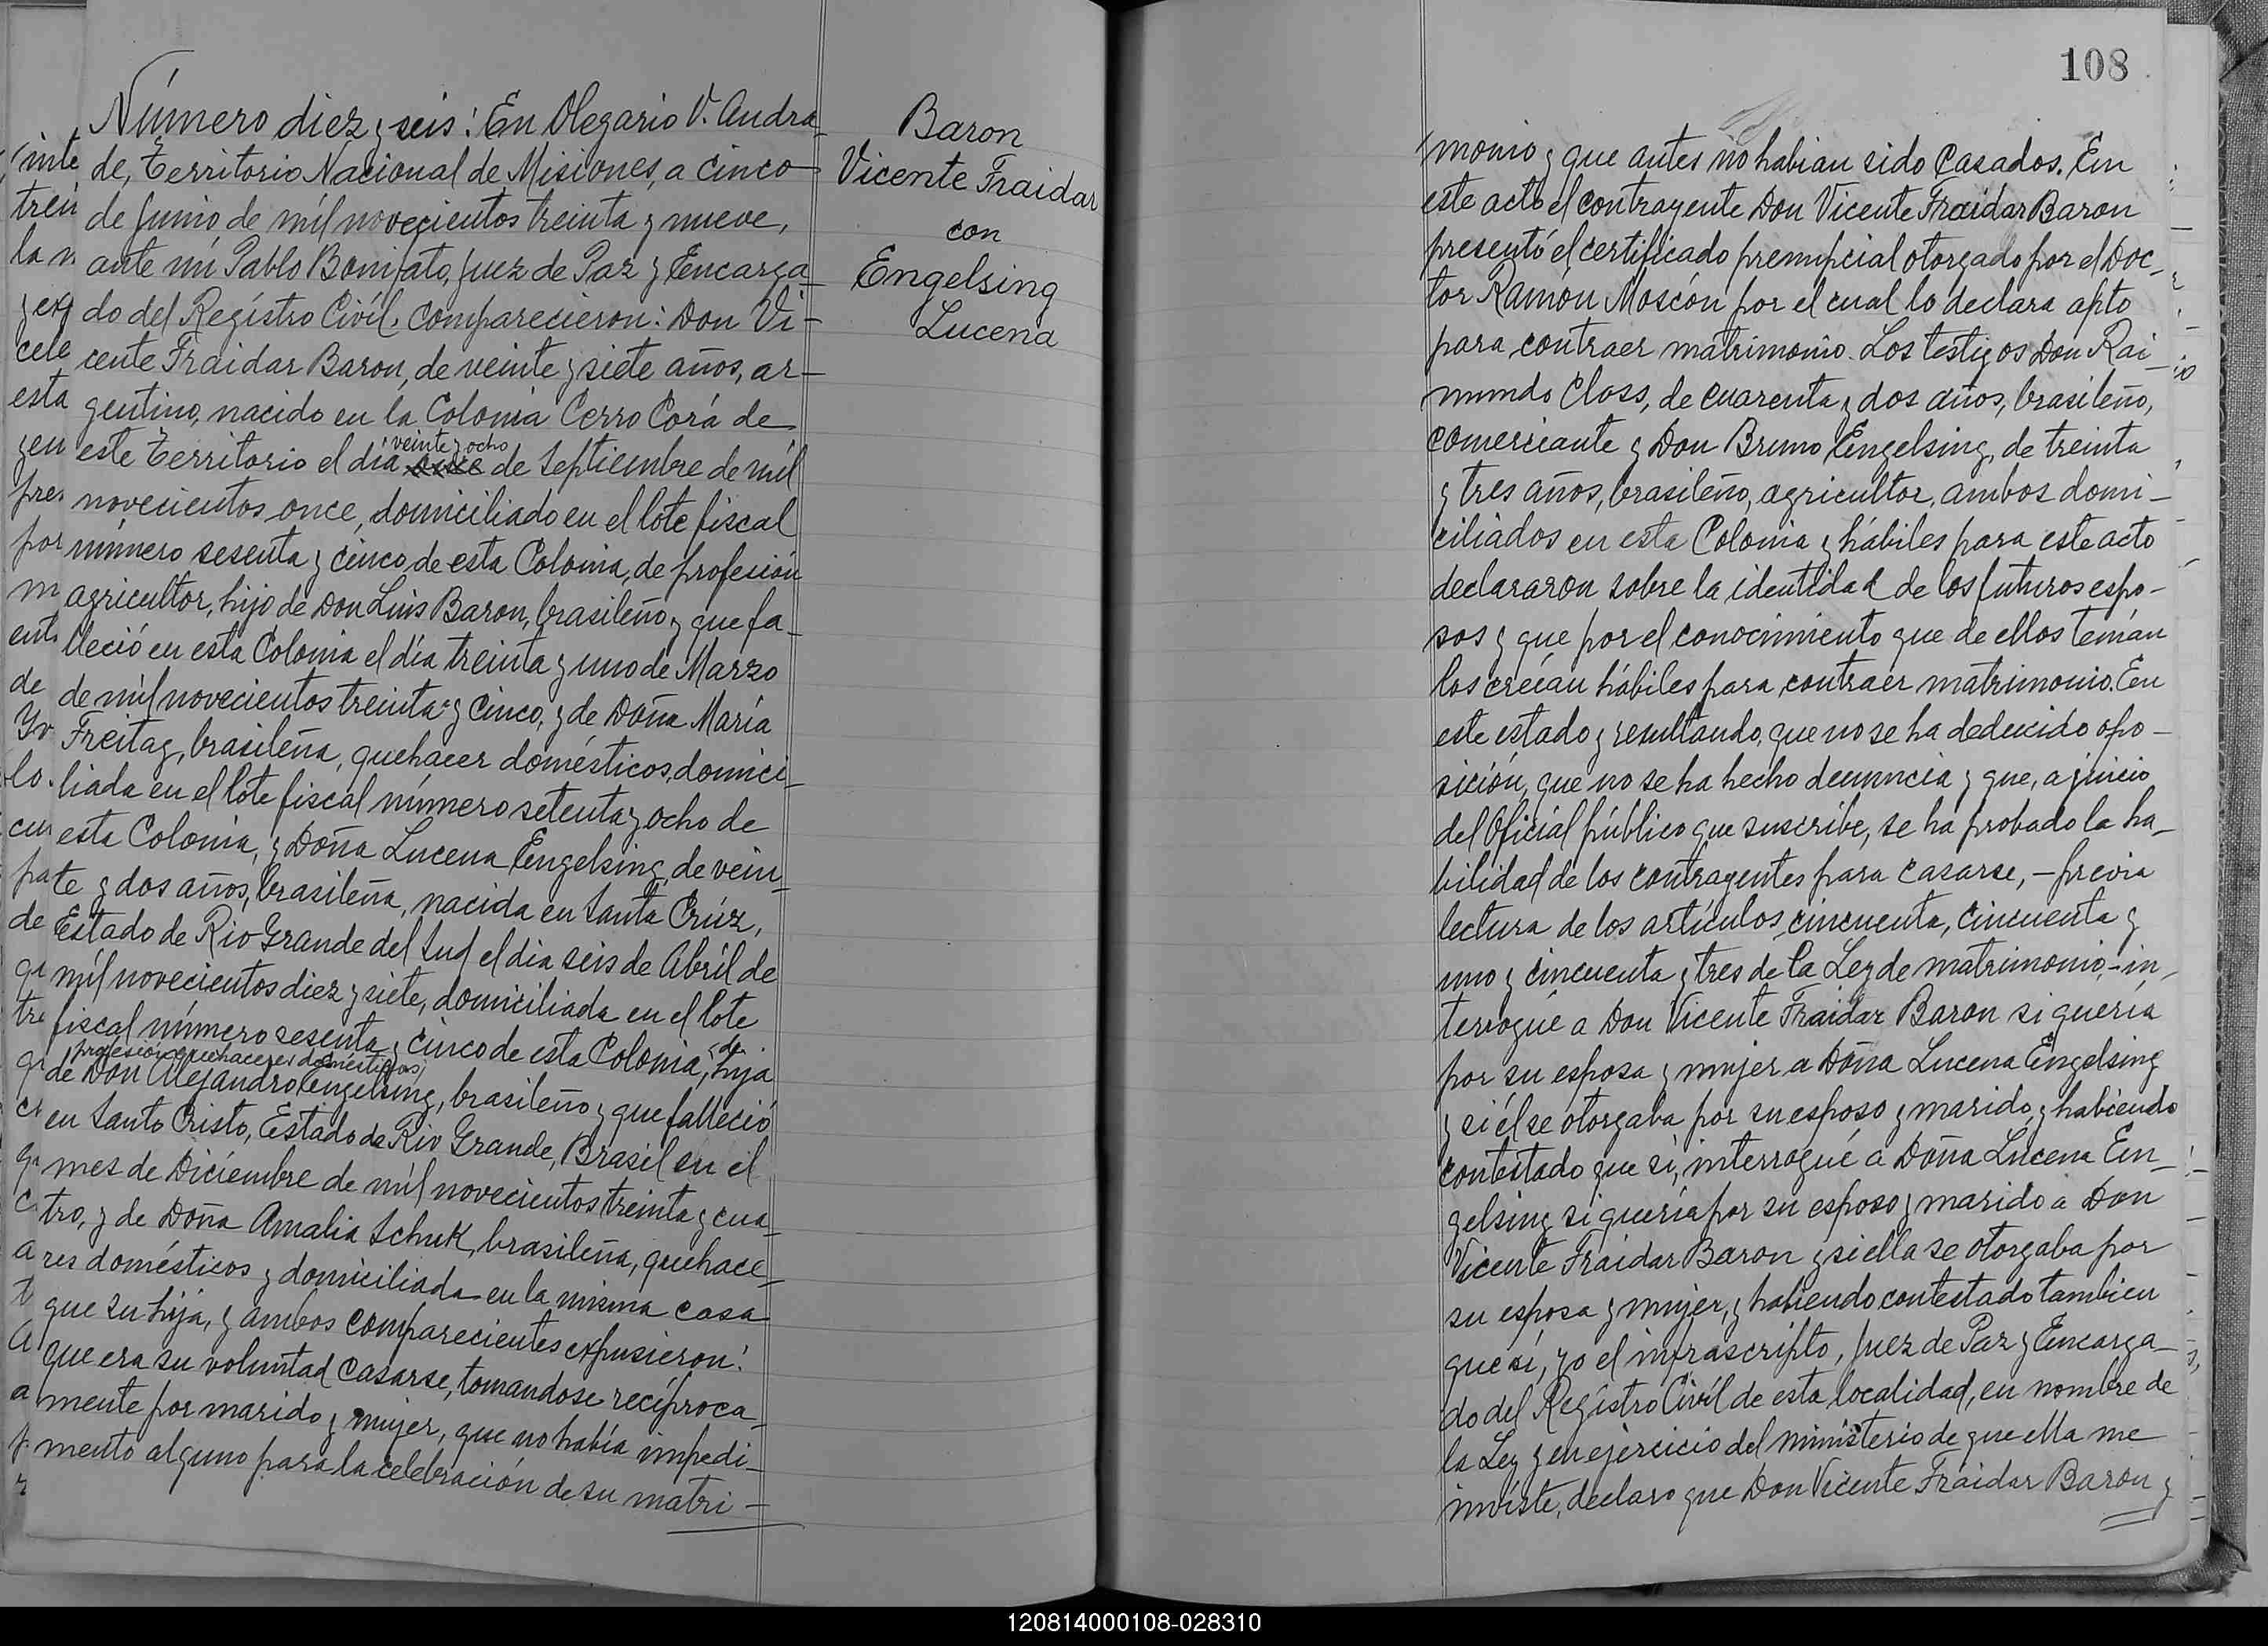 Número diez y seis: En Olegario V. Andra-
de, Territorio Nacional de Misiones, a cinco
de Junio de mil novecientos treinta y nueve,
ante mí Pablo Bonifato, Juez de Paz y Encarga-
do del Registro Civil. Comparecieron: Don Vi-
cente Fraidar Baron, de veinte y siete años, ar-
gentino, nacido en la Colonia Cerro Corá de
veinte y ocho
este Territorio el día de Septiembre de mil
novecientos once, domiciliado en el lote fiscal
número sesenta y cinco de esta Colonia, de profesión
agricultor, hijo de Don Luis Baron, brasileño y que fa-
lleció en esta Colonia el día treinta y uno de Marzo
de mil novecientos treinta y cinco, y de Doña María
Freitag, brasileña, quehacer domésticos, domici-
liada en el lote fiscal número setenta y ocho de
esta Colonia, y Doña Lucena Engelsing, de vein-
te y dos años, brasileña, nacida en Santa Crúz,
Estado de Rio Grande del Sud el dia seis de Abril de
mil novecientos diez y siete, domiciliada en el lote
fiscal número sesenta y cinco de esta Colonia, de
profesión quehaceres domésticos, hija
de Don Alejandro Engelsing, brasileño y que falleció
en Santo Cristo, Estado de Rio Grande, Brasil en el
mes de Diciembre de mil novecientos treinta y cua-
tro, y de Doña Amalia Schuk, brasileña, quehace-
res domésticos y domiciliada en la misma casa
que su hija, y ambos comparecientes expusieron:
que era su voluntad casarse, tomandose recíproca-
mente por marido y mujer, que no había impedi-
mento alguno para la celebración de su matri-
Baron
Vicente Fraidar
con
Engelsing
Lucena
108
monio y que antes no habian sido casados. En
este acto el contrayente Don Vicente Fraidar Baron
presentó el certificado prenupcial otorgado por el Doc-
tor Ramón Moscón por el cual lo declara apto
para contraer matrimonio. Los testigos Don Rai-
mundo Closs, de cuarenta y dos años, brasileño,
comerciante y Don Bruno Engelsing, de treinta
y tres años, brasileño, agricultor, ambos domi-
ciliados en esta Colonia y hábiles para este acto
declararon sobre la identidad de los futuros espo-
sos y que por el conocimiento que de ellos tenían
los creían hábiles para contraer matrimonio. En
este estado y resultando, que no se ha deducido opo-
sición, que no se ha hecho denuncia y que, a juicio
del Oficial público que suscribe, se ha probado la ha-
bilidad de los contrayentes para casarse, - previa
lectura de los artículos cincuenta, cincuenta y
uno y cincuenta y tres de la Ley de matrimonio, - in-
terrogué a Don Vicente Fraidar Baron si quería
por su esposa y mujer a Doña Lucena Engelsing
y si él se otorgaba por su esposo y marido, y habiendo
contestado que sí, interrogué a Doña Lucena En-
gelsing si quería por su esposo y marido a Don
Vicente Fraidar Baron y si ella se otorgaba por
su esposa y mujer, y habiendo contestado tambien
que sí, yo el infrascripto, Juez de Paz y Encarga-
do del Registro Civil de esta localidad, en nombre de
la Ley y en ejercicio del ministerio de que ella me
inviste, declaro que Don Vicente Fraidar Baron y
120814000108-028310